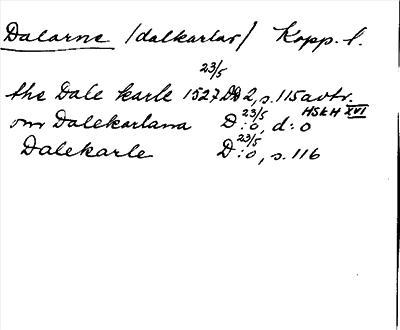 Dalarne /dalkarlar/ Kopp. l.
23/5
the Dale karle 1527 DD 2, s. 115 avtr.
23/5 HSkH XVI
om Dalekarlana D:o, d:o
23/5
Dalekarle D:o, s. 116